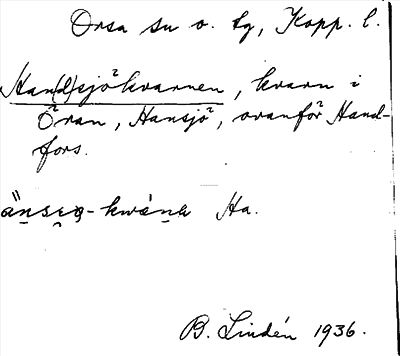 Orsa sn o. tg, Kopp. l.
Han(d)sjökvarnen, kvarn i
Öran, Hansjö, ovanför Hand-
fors.
Ha.
B. Lindén 1936.